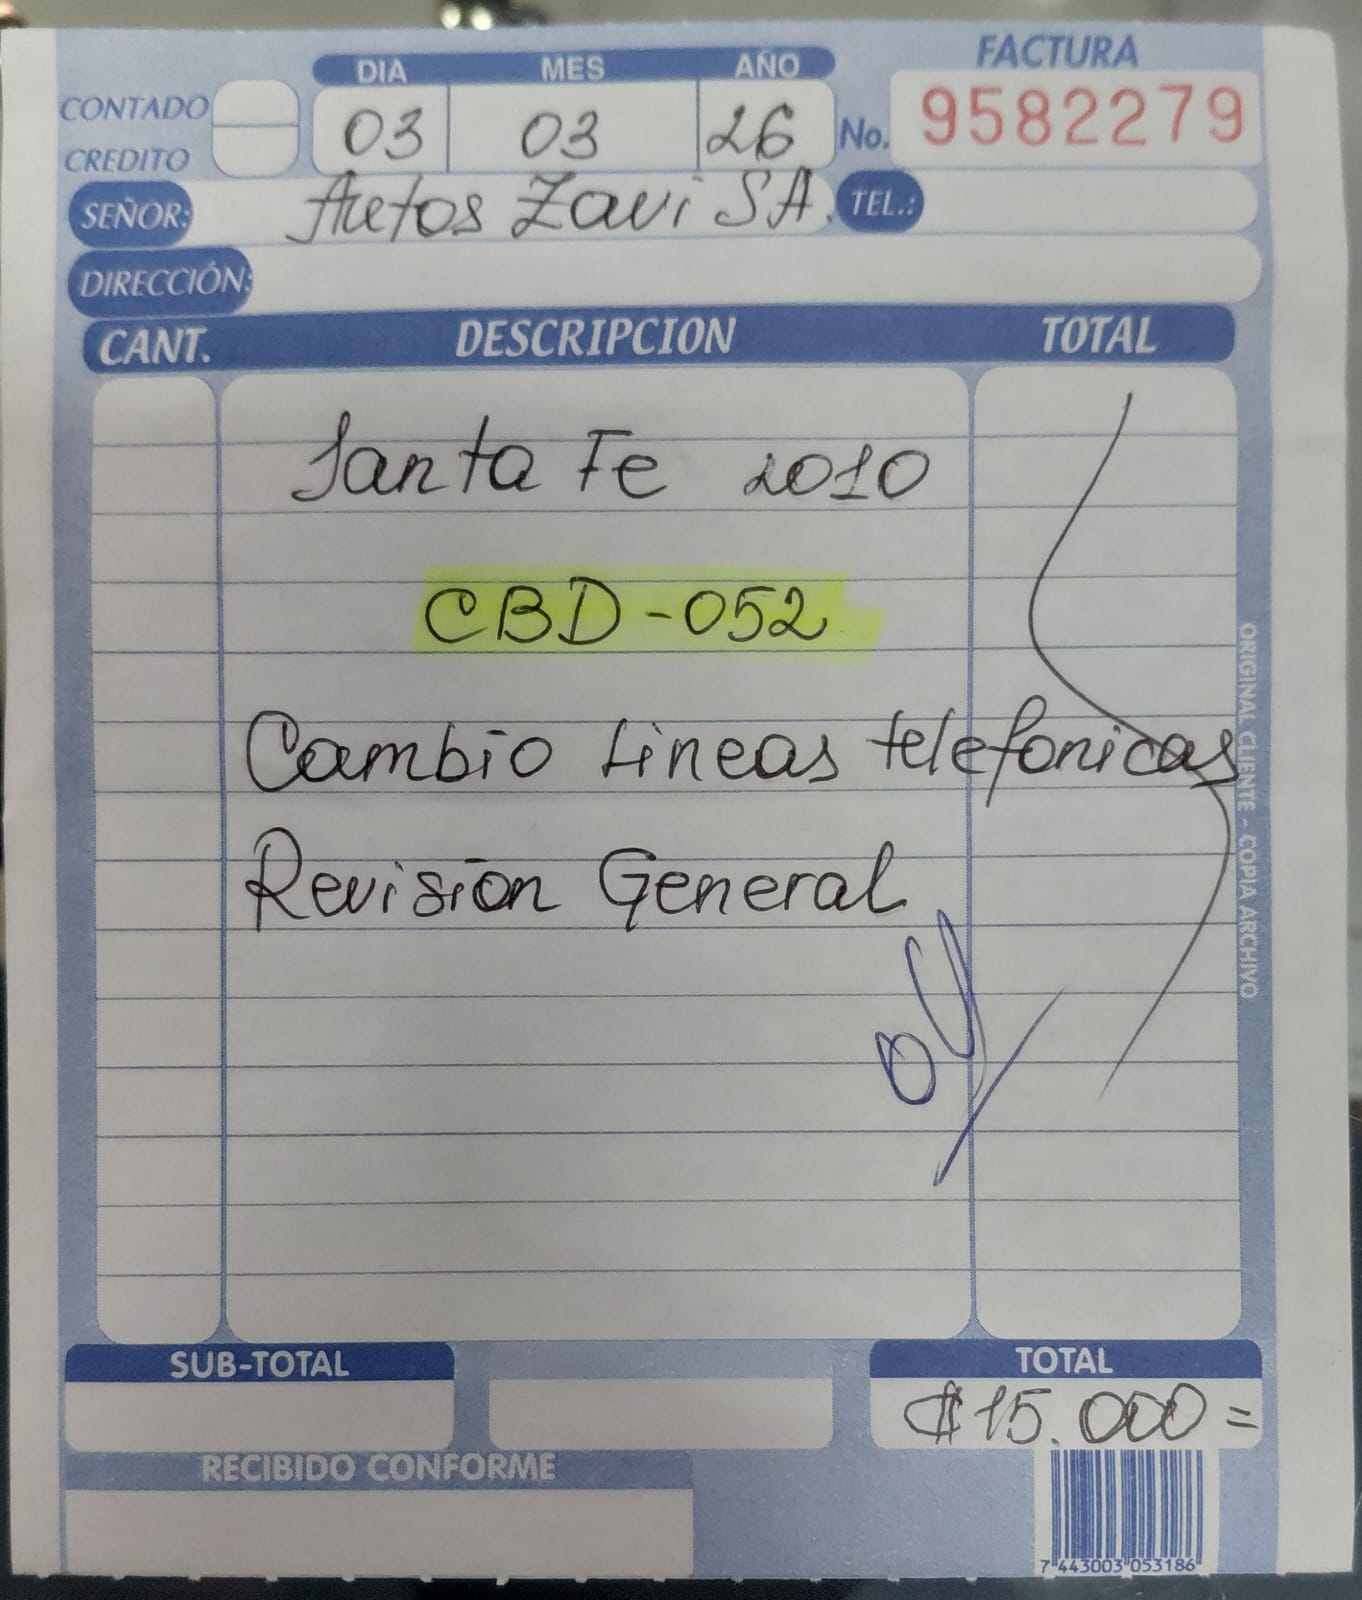 FACTURA
DIA MES AÑO
CONTADO
CREDITO
03 03 26 No. 9582279
SEÑOR: Autos Zavi SA. TEL.:
DIRECCIÓN:
CANT. DESCRIPCION TOTAL
Santa Fe 2010
CBD-052
Cambio Lineas telefonicas
Revisión General
ORIGINAL CLIENTE - COPIA ARCHIVO
SUB-TOTAL TOTAL
₡15.000=
RECIBIDO CONFORME
7 443003 053186